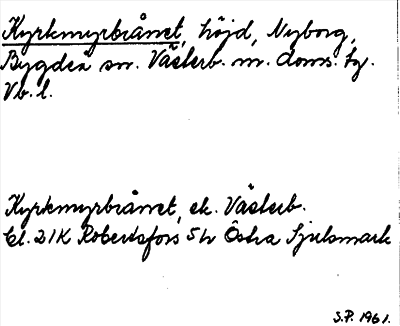 Kyrkmyrbrånet, höjd, Nyborg,
Bygdeå sn. Västerb. m. doms. tg.
Vb. l.
Kyrkmyrbrånet, ek. Västerb.
bl. 21K Robertsfors 5h Östra Sjulsmark
S.P. 1961.